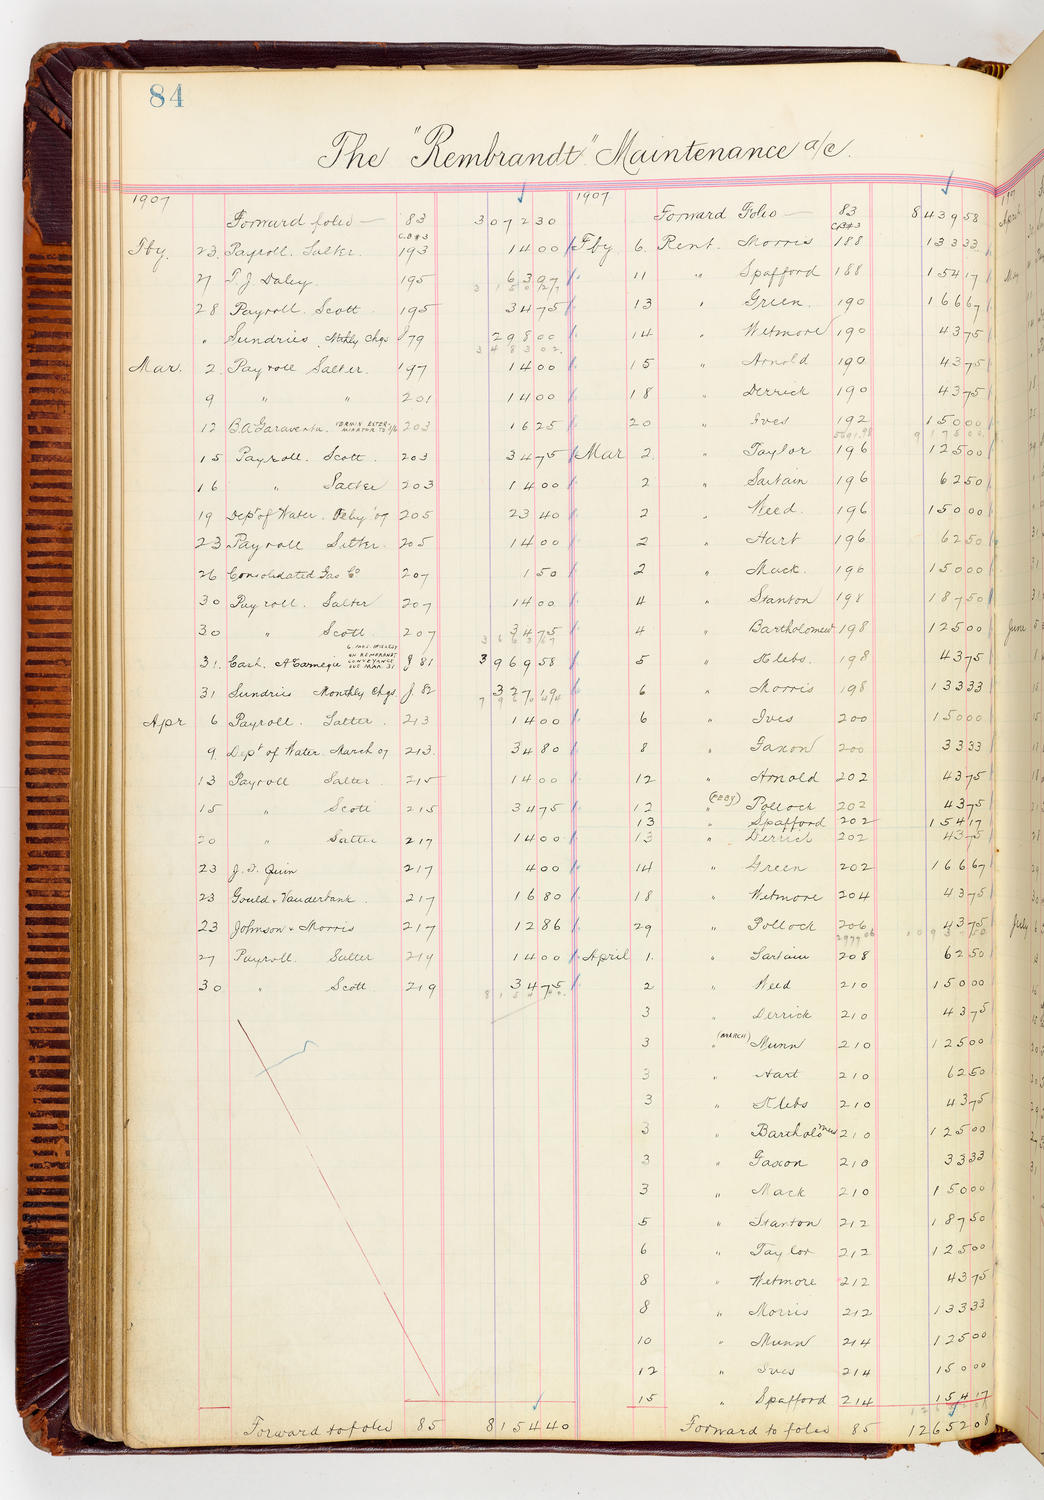 84
The "Rembrandt" Maintenance a/c.
1907
Forward folio — 83 3 072 30
C.B#3
Fby. 23. Payroll. Salter. 193 14 00
27 T. J. Daley. 195 63 97
3 150 27
28 Payroll. Scott 195 34 75
" Sundries. Mthly Chgs J79 298 00
3 483 02
Mar. 2. Payroll Salter. 197 14 00
9 " " 201 14 00
12 C.A. Garaventa. VERMIN EXTER- 203 16 25
15 Payroll. Scott. 203 34 75
16 " Salter 203 14 00
19 Dept of Water. Feby '07 205 23 40
23 Payroll Salter. 205 14 00
26 Consolidated Gas Co 207 1 50
30 Payroll. Salter 207 14 00
30 " Scott 207 34 75
3 663 67
31. Cash. A Carnegie 6 MOS. INTEREST J 81 3 969 58
ON REMBRANDT
CONVEYANCE
DUE MAR. 31
31 Sundries Monthly Chgs. J. 82 327 19
7 960 44
Apr 6 Payroll. Salter. 213 14 00
9. Dept of Water. March 07 213. 34 80
13 Payroll Salter. 215 14 00
15 " Scott 215 34 75
20 " Salter 217 14 00
23 J. F. Quin 217 4 00
23 Gould & Vanderbank. 217 16 80
23 Johnson & Morris 217 12 86
27 Payroll. Salter 219 14 00
30 " Scott 219 34 75
Forward to folio 85 8 154 40
1907
Forward Folio — 83 8 439 58
CB#3
Fby 6. Rent. Morris 188 133 33
11 " Spafford 188 154 17
13 " Green. 190 166 67
14 " Wetmore 190 43 75
15 " Arnold 190 43 75
18 " Derrick 190 43 75
20 " Ives 192 150 00
5691.98 9 175 00
Mar 2. " Taylor 196 125 00
2 " Sartain 196 62 50
2 " Weed. 196 150 00
2 " Hart 196 62 50
2 " Mack. 196 150 00
4 " Stanton 198 187 50
4 " Bartholomew 198 125 00
5 " Klebs. 198 43 75
6 " Morris 198 133 33
6 " Ives 200 150 00
8 " Gaxon 200 33 33
12 " Arnold 202 43 75
12 " (FEBY) Pollock 202 43 75
13 " Spafford 202 154 17
13 " Derrick 202 43 75
14 " Green 202 166 67
18 " Wetmore 204 43 75
29 " Pollock 206 43 75
2979 06 10 937 50
April 1. " Sartain 208 62 50
2 " Weed 210 150 00
3 " Derrick 210 43 75
3 " (MARCH) Munn 210 125 00
3 " Hart 210 62 50
3 " Klebs 210 43 75
3 " Bartholomew 210 125 00
3 " Gaxon 210 33 33
3 " Mack 210 150 00
5 " Stanton 212 187 50
6 " Taylor 212 125 00
8 " Wetmore 212 43 75
8 " Morris 212 133 33
10 " Munn 214 125 00
12 " Ives 214 150 00
15 " Spafford 214 154 17
Forward to folio 85 12 652 08
April
May
June
July